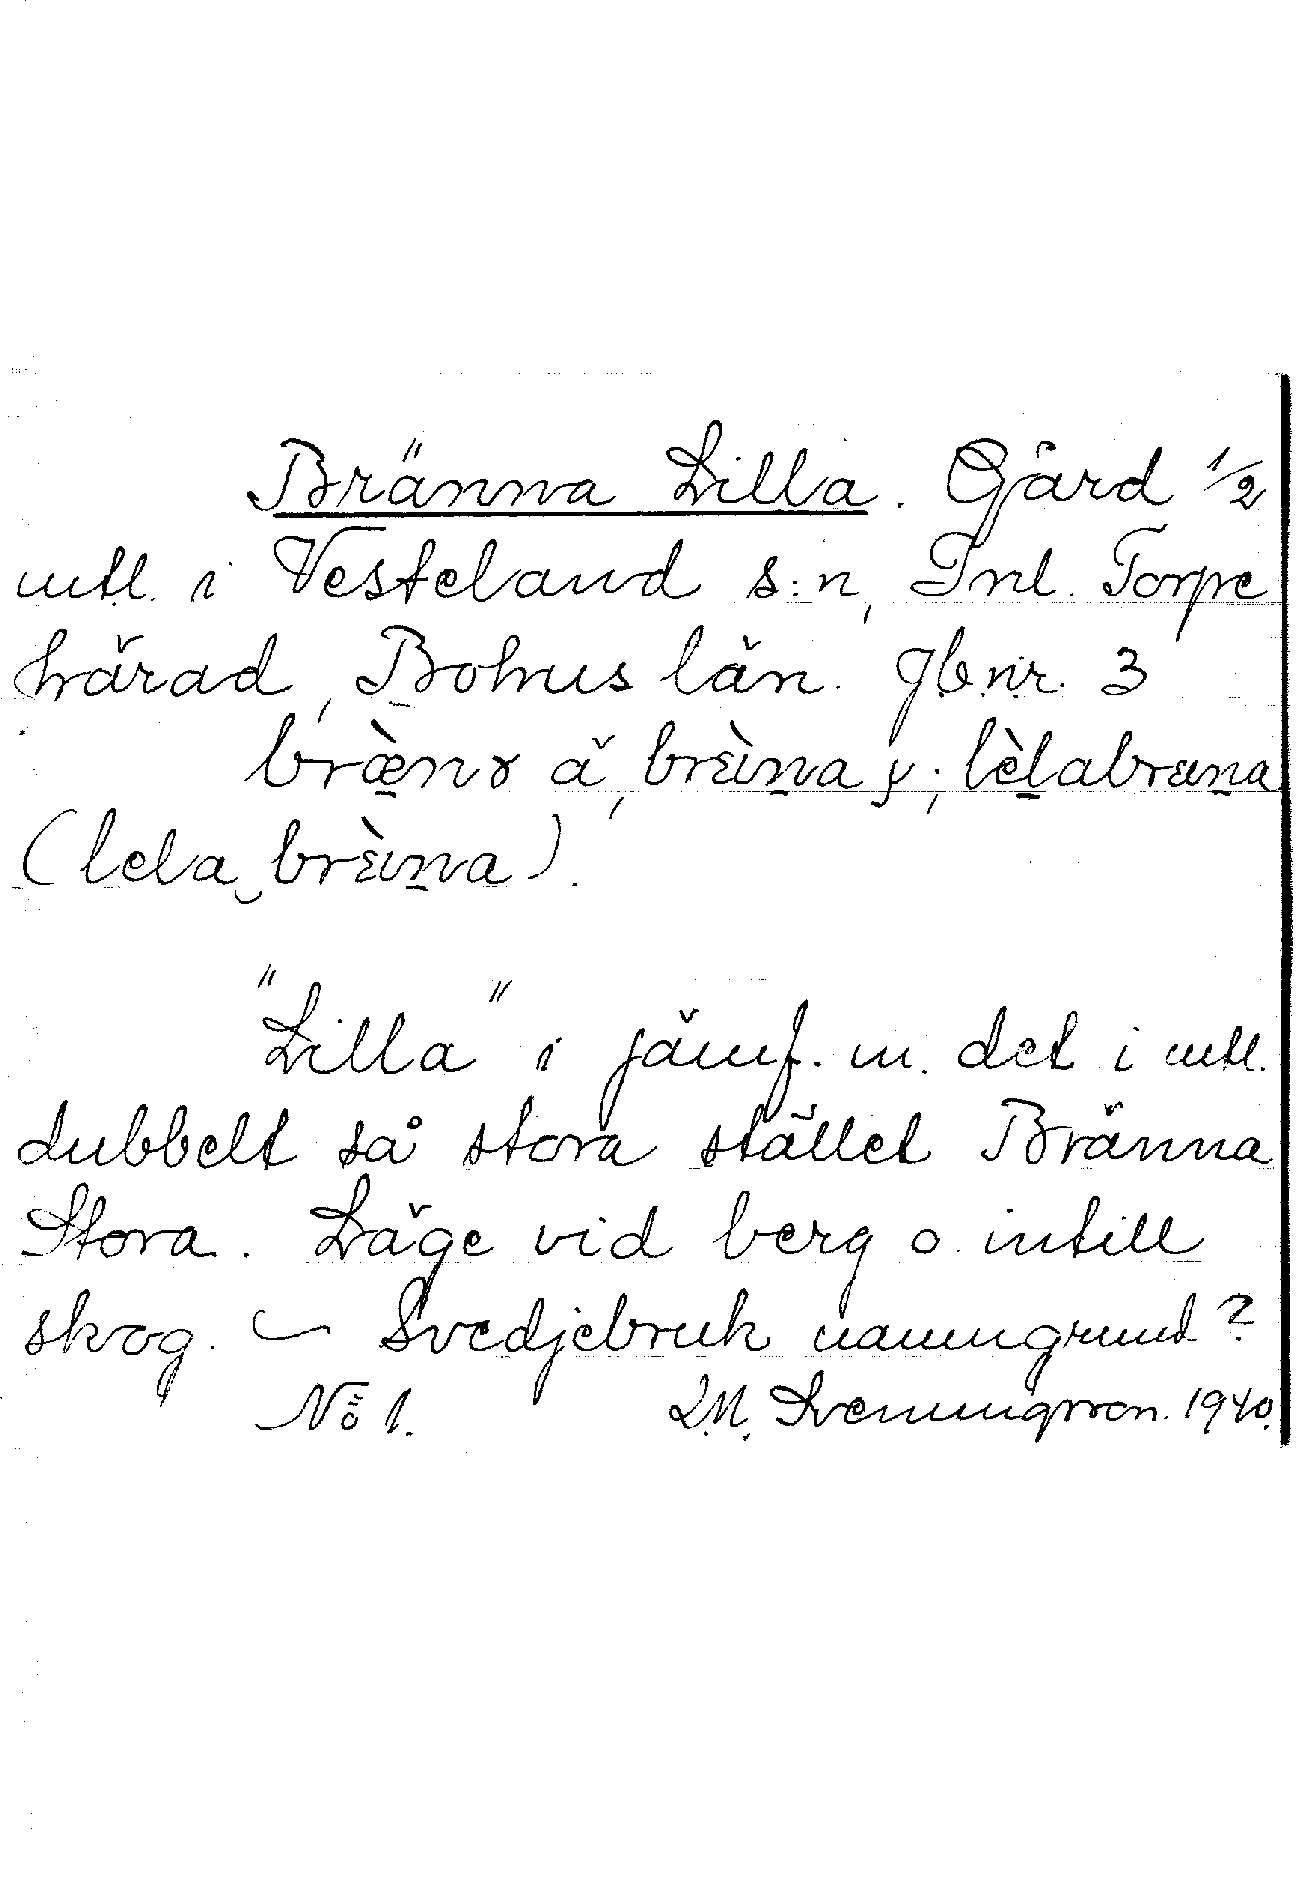 Bränna Lilla. Gård 1/2
mtl. i Vesteland s:n, Inl. Torpe
härad, Bohus län. Jb.nr. 3
bræ̀nɤ ă, brɛ̀ına y; lèlabrɛına
(lela‿brɛ̀ına).
"Lilla" i jämf. m. det i mtl.
dubbelt så stora stället Bränna
Stora. Läge vid berg o. intill
skog. — Svedjebruk namngrund?
No 1. L.M. Svenungsson. 1940.